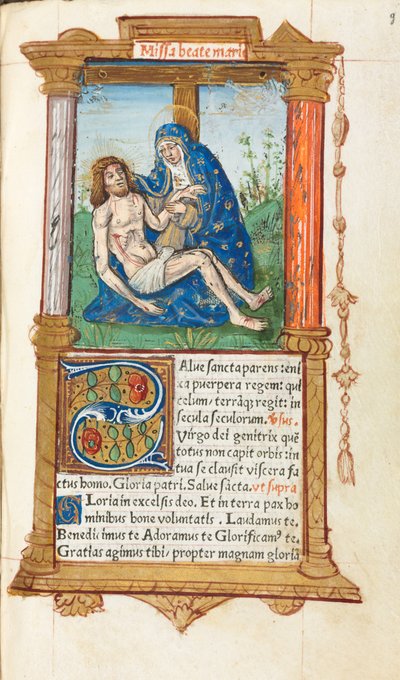 9
Missa beate marie
Salue sancta parens: eni
xa puerpera regem: qui
celum, terrāq̨ regit: in
secula seculorum. ℣sus.
Virgo dei genitrix quē
totus non capit orbis: in
tua se clausit viscera fa
ctus homo. Gloria patri. Salue sācta. vt supra
GLoria in excelsis deo. Et in terra pax ho
minibus bone voluntatis. Laudamus te.
Benedicimus te Adoramus te Glorificamꝰ te.
Gratias agimus tibi propter magnam gloriā